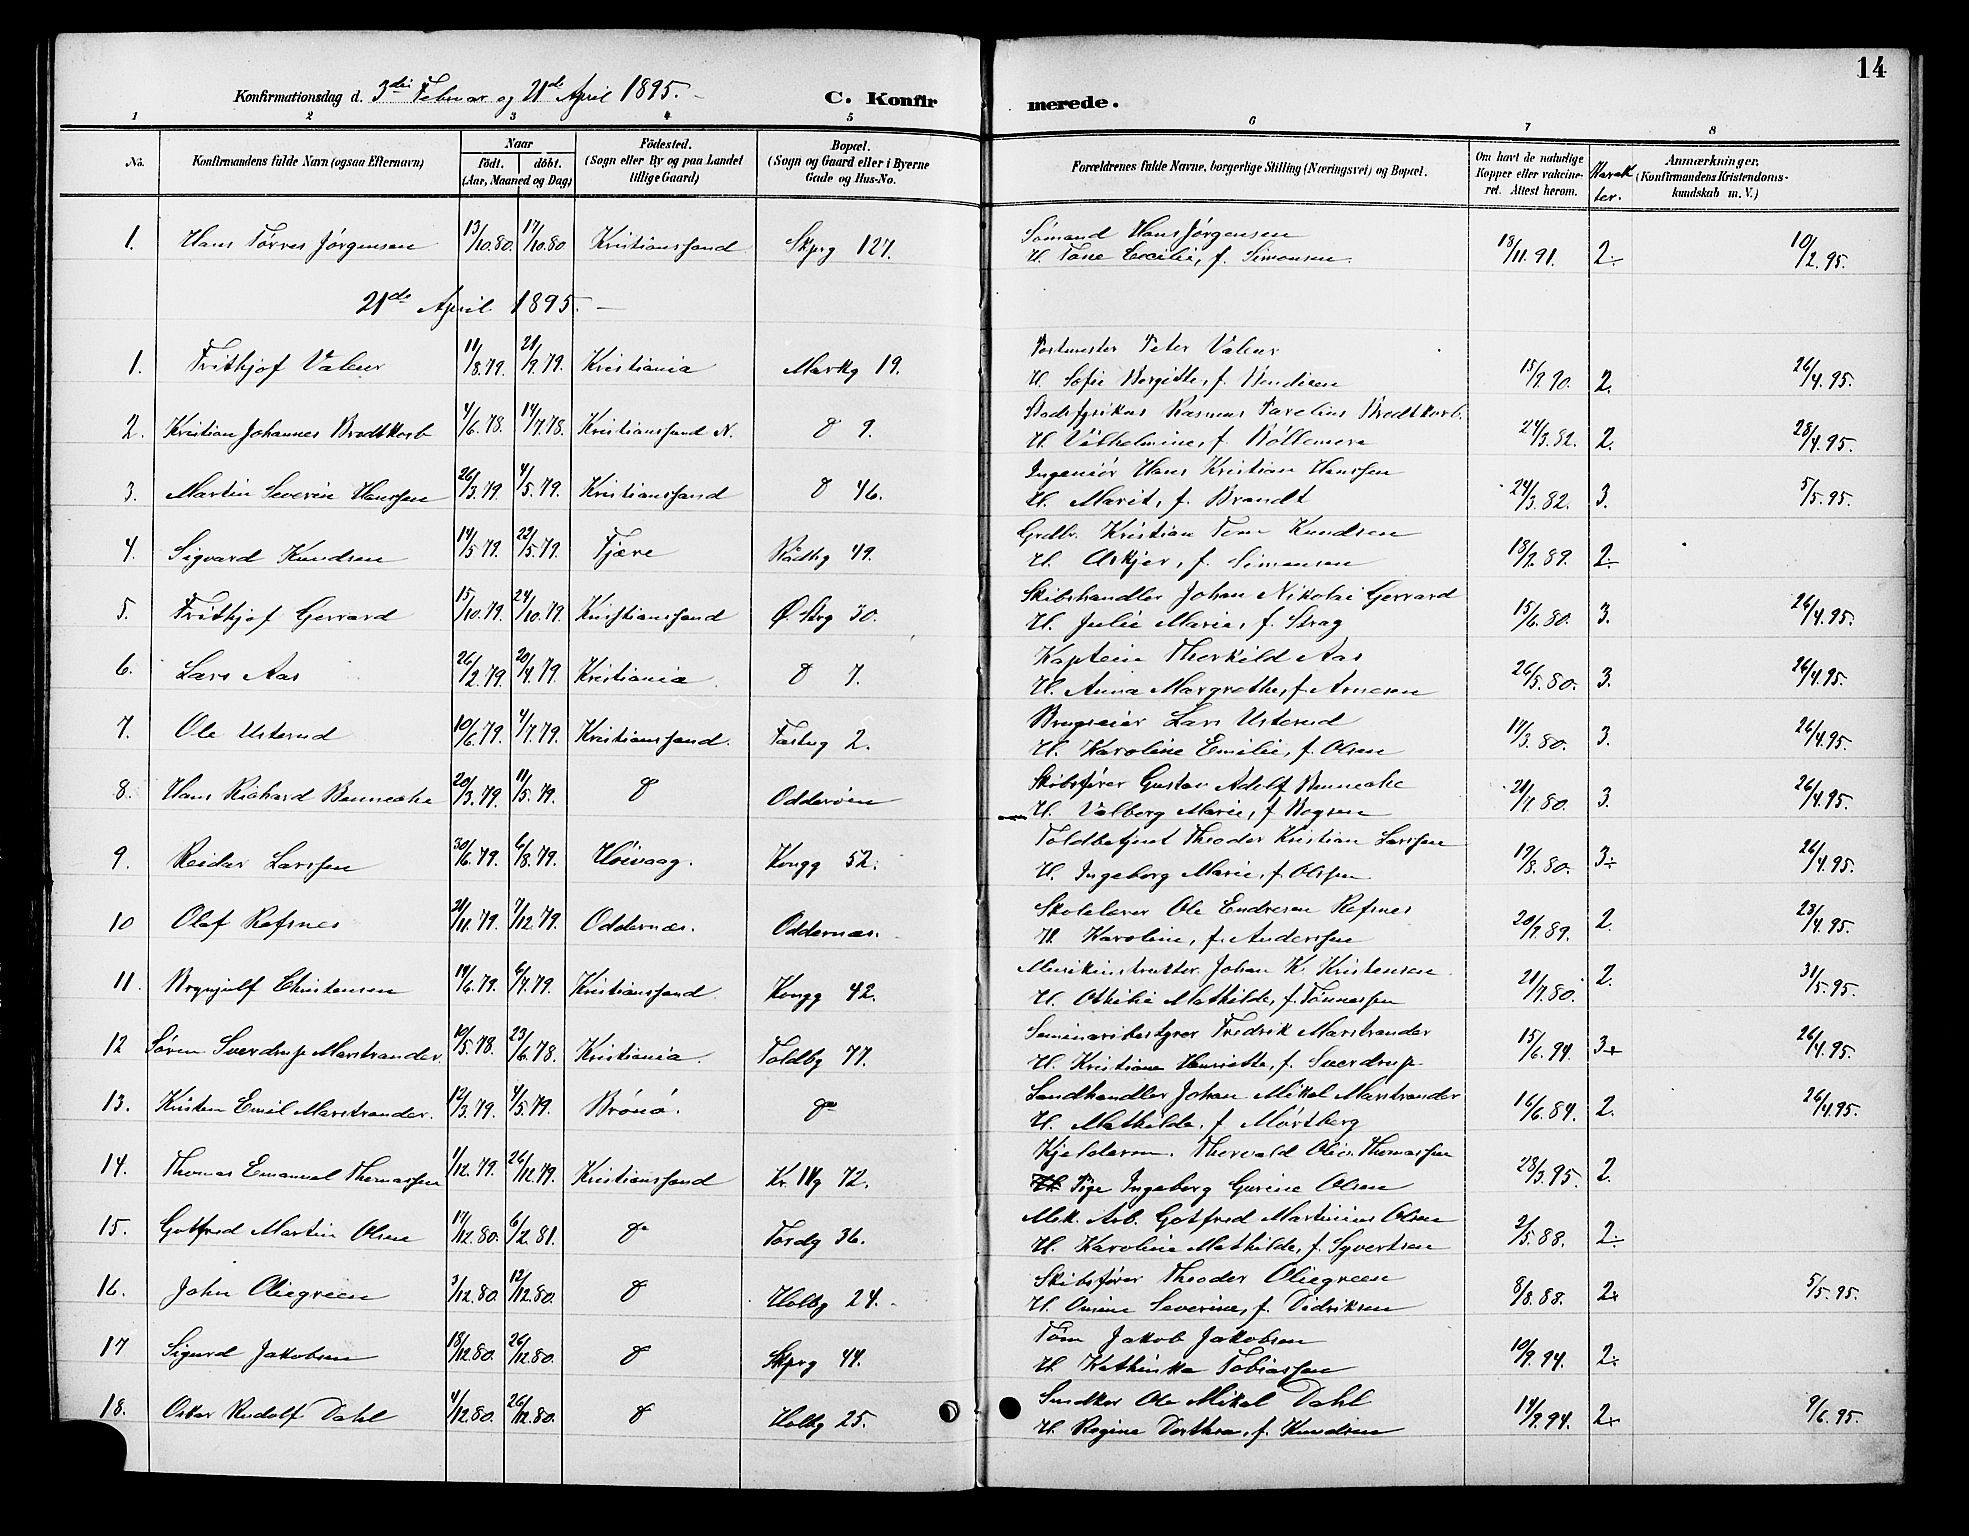 14
Konfirmationsdag d. 3die Februar og 21de April 1895. C. Konfirmerede.
1 2 3 4 5 6 7 8
No. Konfirmandens fulde Navn (ogsaa Efternavn) Naar født. døbt. (Aar, Maaned og Dag) Fødested. (Sogn eller By og paa Landet tillige Gaard) Bopæl. (Sogn og Gaard eller i Byerne Gade og Hus-No. Forældrenes fulde Navne, borgerlige Stilling (Næringsvei) og Bopæl. Om havt de naturlige Kopper eller vaccineret. Attest herom. Karakter. Anmærkninger. (Konfirmandens Kristendomskundskab m. V.)
1. Hans Tørres Jørgensen 13/10.80. 17/10.80 Kristianssand Skprg 127. Sømand Hans Jørgensen 18/11.91. 2÷ 10/2.95.
H. Tone Cecilie, f. Simonsen.
21de April 1895.
1. Frithjof Valeur 11/8.79. 21/9.79. Kristiania Markg 19. Postmester Peter Valeur 15/9.90. 2. 26/4.95.
H. Sofie Borgitte, f. Bendixen
2. Kristian Johannes Brodtkorb 4/6.78. 14/7.78. Kristianssund N. do 9. Stadsfysikus Rasmus Parelius Brodtkorb 24/3.82. 2. 28/4.95.
H. Vilhelmine, f.
3. Martin Severin Hanssen 26/3.79. 4/5.79. Kristianssand do 46. Ingeniør Hans Kristian Hanssen 24/3.82. 3. 5/5.95.
H. Marit, f. Brandt
4. Sigvard Knudsen 14/5.79. 22/5.79. Fjære Raadhg 49. Grdbr. Kristian Tom Knudsen 18/9.89. 2÷
H. Askjer, f. Simonsen
5. Frithjof Gerrard 15/10.79. 24/10.79. Kristianssand Ø. Strg 30. Skibshandler Johan Nikolai Gerrard 15/6.80. 3. 26/4.95.
H. Julie Marie, f. Strag
6. Lars Aas 26/2.79. 20/4.79. Kristiania do 7. Kaptein Thorkild Aas 26/5.80. 3. 26/4.95.
H. Anna Margrethe, f. Arnesen
7. Ole Usterud 10/6.79. 4/7.79. Kristianssand. Fastng 2. Brugseier Lars Usterud 17/3.80. 3. 26/4.95.
H. Karoline Emilie, f. Olsen
8. Hans Richard Benneche 20/3.79. 11/5.79. do Odderøen Skibsfører Gustav Adolf Benneche 21/7.80. 3. 26/4.95.
H. Valborg Marie, f. Bogsen
9. Reidar Larssen 30/6.79. 6/8.79. Høivaag. Kongg 52. Toldbetjent Theodor Kristian Larssen 19/8.80. 3÷ 26/4.95.
H. Ingeborg Marie, f. Olssen
10 Olaf Refsnes 21/11.79. 7/12.79. Oddernæs. Oddernæs. Skolelærer Ole Endresen Refsnes 20/9.89. 2. 23/4.95.
H. Karoline, f. Anderssen
11. Brynjulf Christensen 14/6.79. 6/7.79. Kristianssand. Kongg 42. Musikinstruktør Johan K. Kristensen 21/7.80. 2. 31/5.95.
H. Othilie Mathilde, f. Tønnessen
12 Søren Sverdrup Marstrander. 10/5.78. 23/6.78. Kristiania. Toldbg 77. Seminariebestyrer Fredrik Marstrander 15/6.94. 3+ 26/4.95.
H. Kristiane Henriette, f. Sverdrup
13. Kristen Emil Marstrander. 12/3.79. 4/5.79. Brønø. do Landhandler Johan Mikal Marstrander 16/6.84. 2. 26/4.95.
H. Mathilde, f. Mørtberg
14. Thomas Emanuel Thomassen 1/12.79. 26/12.79. Kristianssand Kr. IVg 72. Kjeldersv. Thorvald Oliv. Thomassen 28/3.95. 2.
Pige Ingeborg Gurine Olsen
15. Gotfred Martin Olsen 17/12.80. 6/2.81. do Tordg 36. Mek. Arb. Gotfred Martinius Olsen 2/5.88. 2÷
H. Karoline Mathilde, f. Syvertsen
16. John Oliegreen 3/12.80. 12/12.80. do Holbg 24. Skibsfører Theodor Oliegreen 8/8.88. 2+ 5/5.95.
H. Severine, f. Didriksen
17 Sigurd Jakobsen 18/12.80. 26/12.80. do Skprg 44. Tøm Jakob Jakobsen 10/9.94. 2÷
H. Kathinka Tobiassen
18. Oskar Rudolf Dahl 4/12.80. 26/12.80. do Holbg 25. Snedker Ole Mikal Dahl 14/9.94. 2+ 9/6.95.
H. Regine Dorthea, f. Knudsen